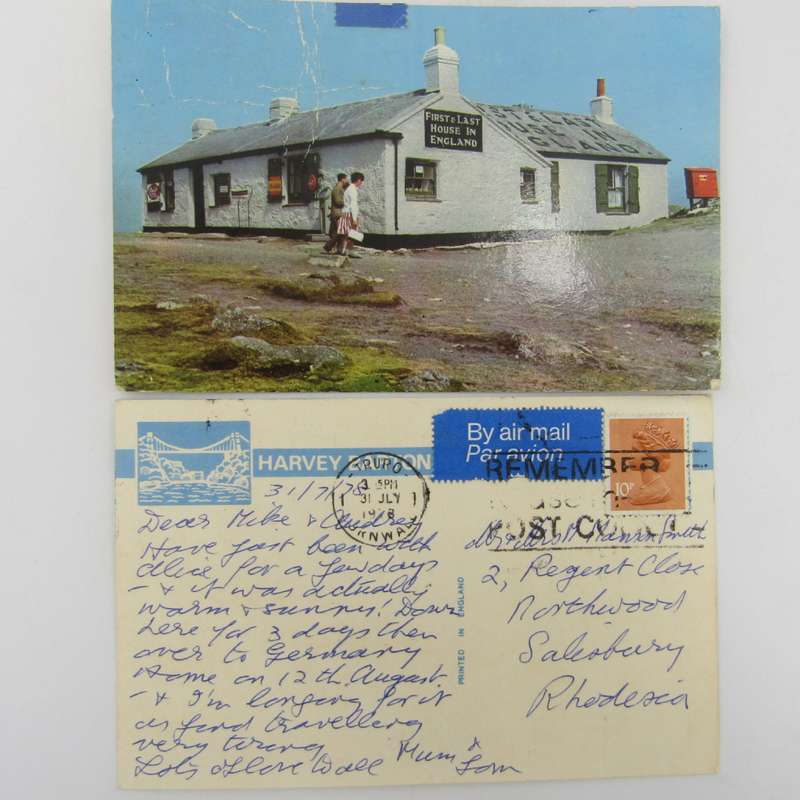 FIRST & LAST
HOUSE IN
ENGLAND
HOUSE IN
HARVEY
By air mail
Par avion
REMEMBER
POST CODE
10P
TRURO
3 15PM
31 JLY
1978
CORNWALL
31/7/78
Dear Mike & Audrey
Have just been with
Alice for a few days
- & it was actually
warm & sunny! Down
here for 3 days then
over to Germany
Home on 12th August
- & I'm longing for it
as find travelling
very tiring
Lots of love to all
Mum &
Tom
PRINTED IN ENGLAND
2, Regent Close
Northwood
Salisbury
Rhodesia